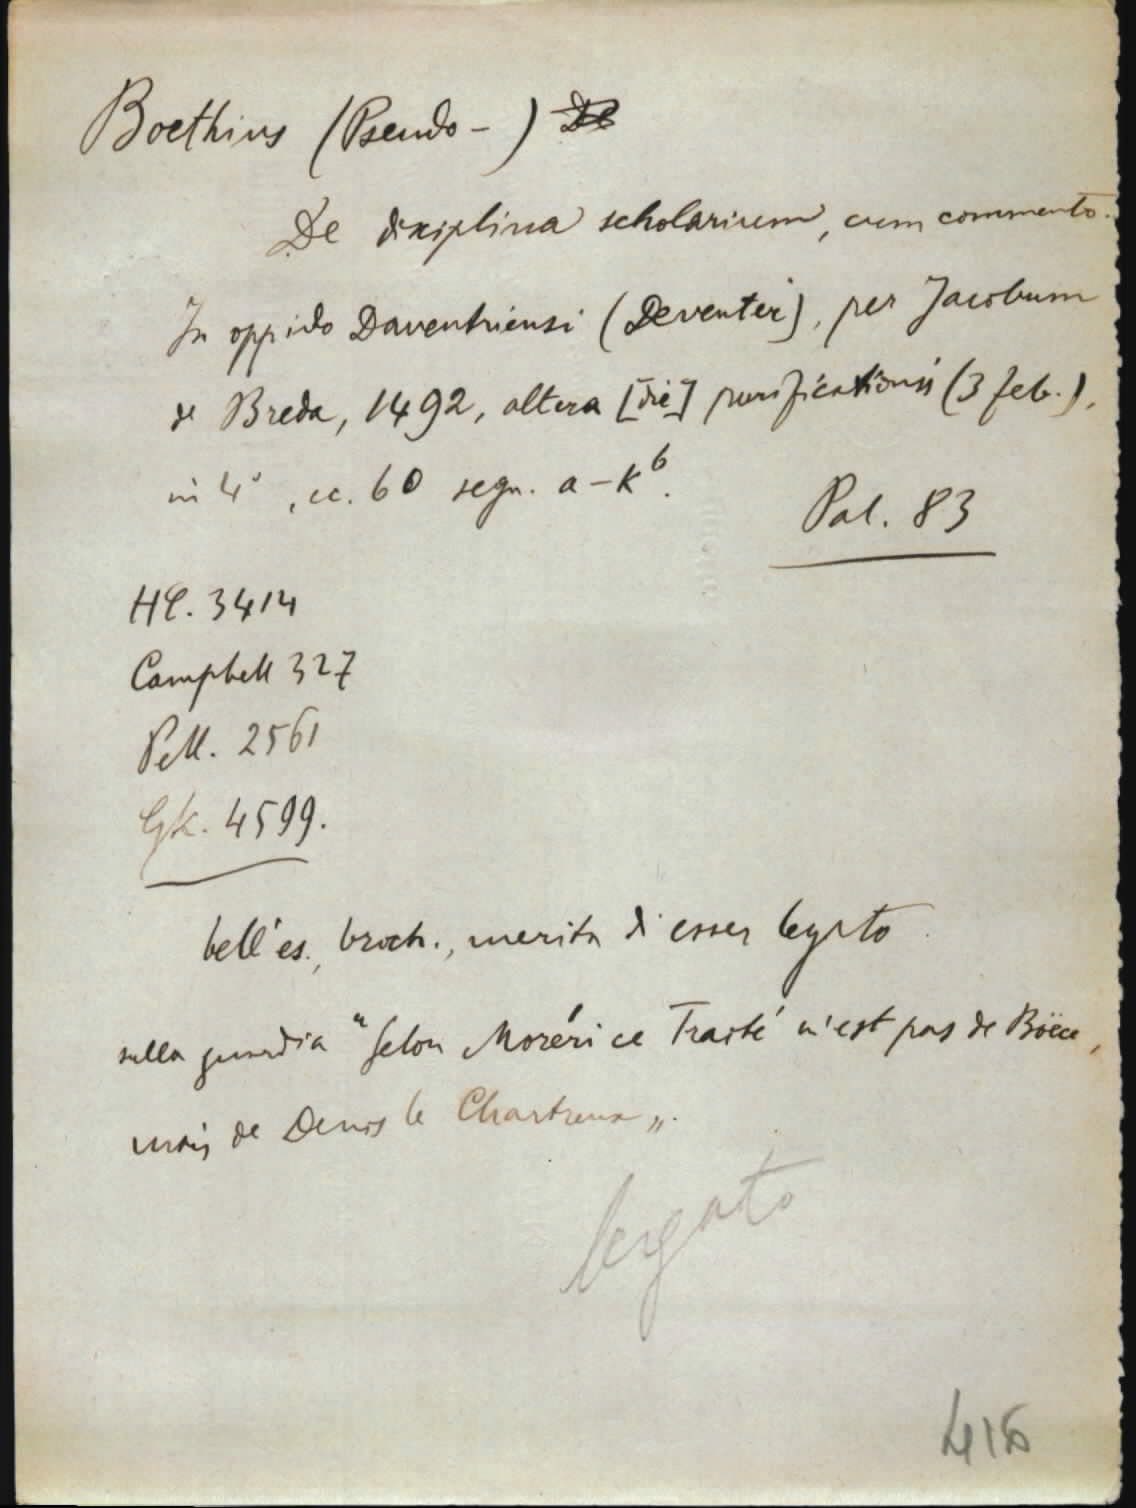 Boethius (Pseudo-) De
De disciplina scholarium, cum commento.
In oppido Daventriensi (Deventer), per Jacobum
de Breda, 1492, altera [die] purificationis (3 feb.),
in 4°, cc. 60 segn. a-k⁶.
Pal. 83
HC. 3414
Campbell 327
Pell. 2561
Gk. 4599.
bell'es., broch., merita di esser legato.
sulla guardia "Selon Moréri ce Traité n'est pas de Böece,
mais de Denis le Chartreux".
legato